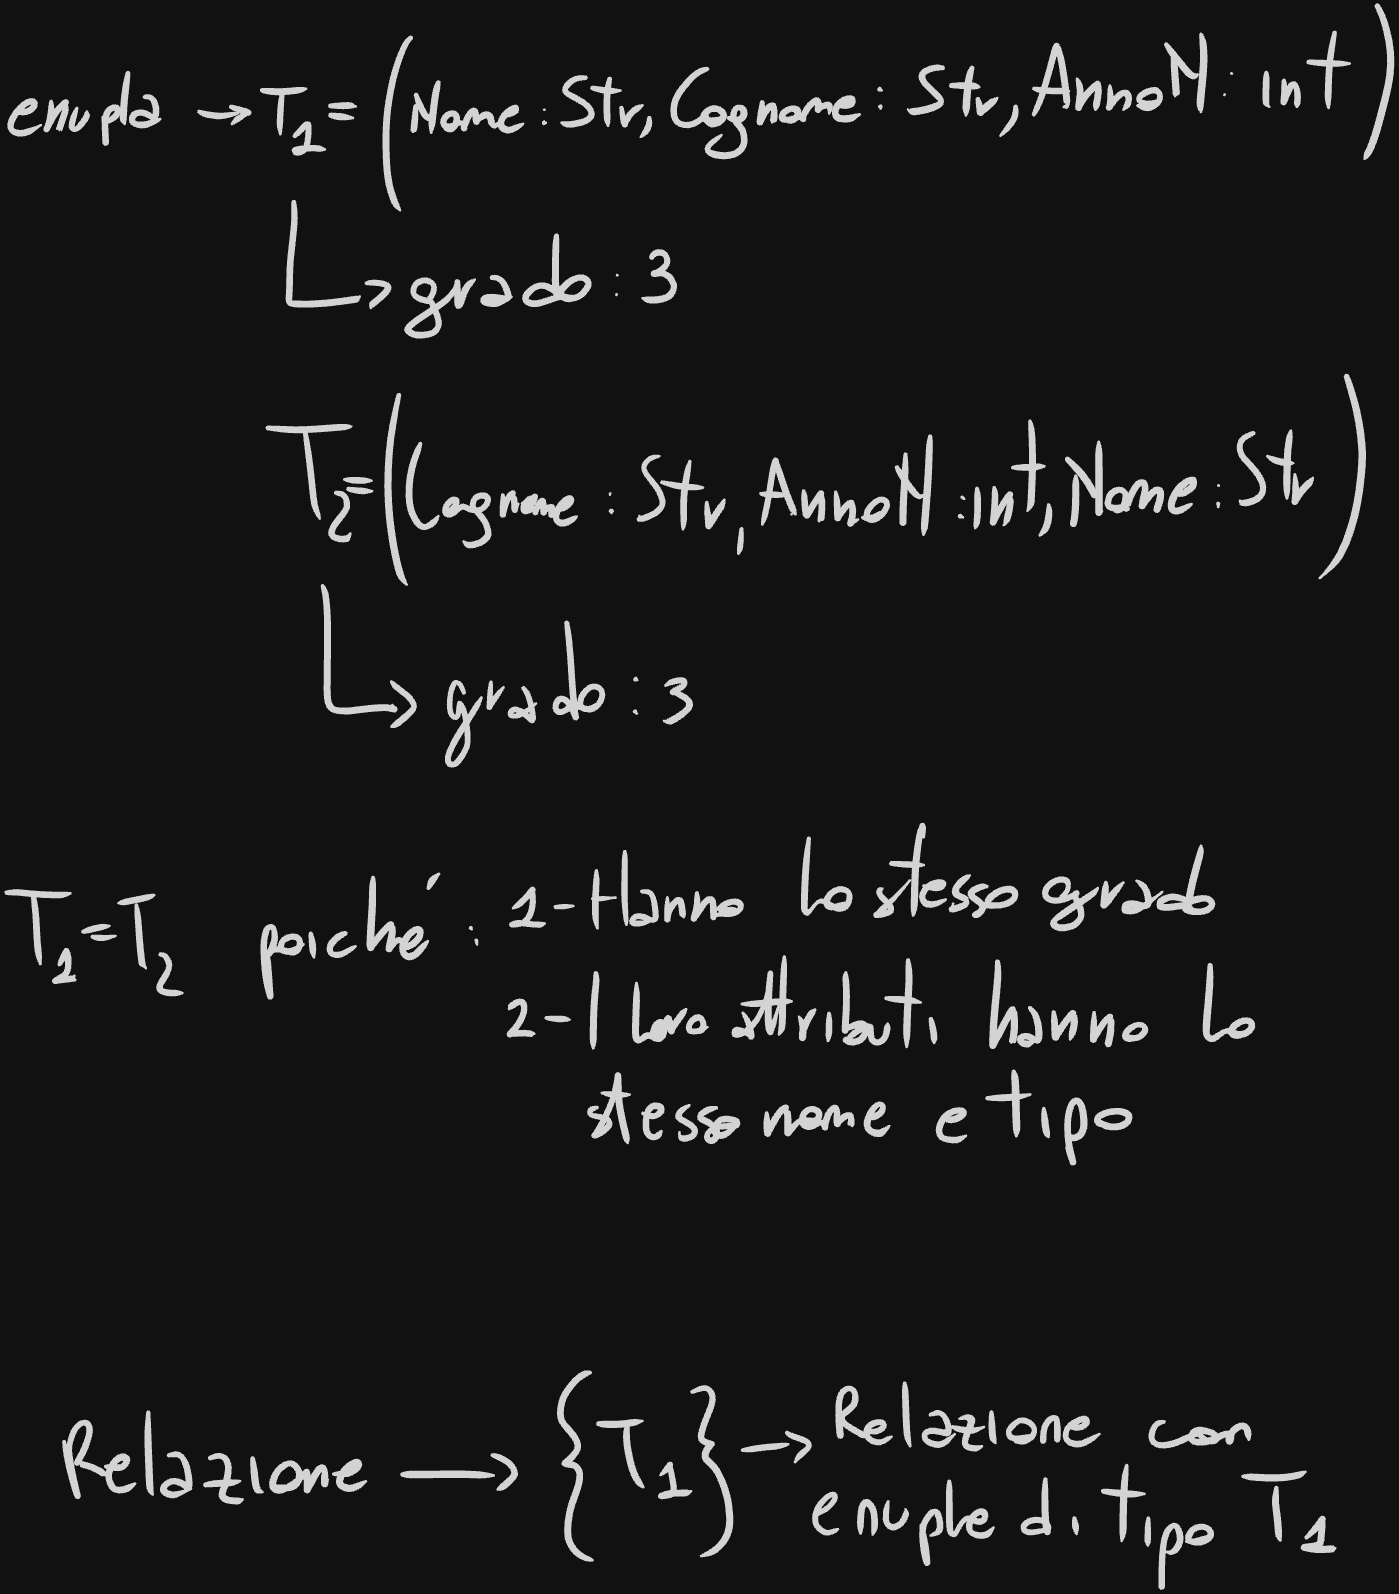 enupla → T1 = (Nome : Str, Cognome : Str, AnnoN : int)
↳ grado : 3
T2 = (Cognome : Str, AnnoN : int, Nome : Str)
↳ grado : 3
T1 = T2 poiché : 1 - Hanno lo stesso grado
2 - I loro attributi hanno lo
stesso nome e tipo
Relazione → {T1} → Relazione con
enuple di tipo T1